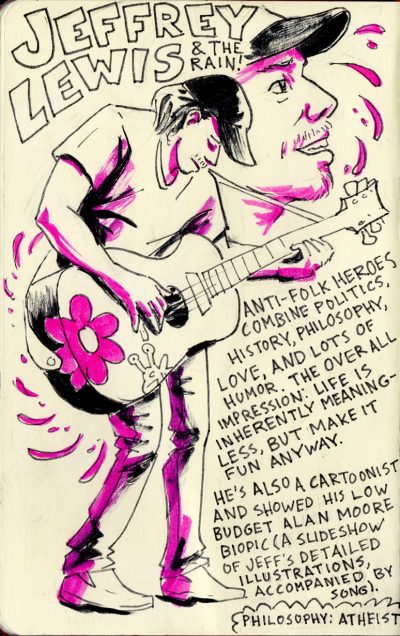 JEFFREY
LEWIS & THE
RAIN!
ANTI-FOLK HEROES
COMBINE POLITICS,
HISTORY, PHILOSOPHY,
LOVE, AND LOTS OF
HUMOR. THE OVERALL
IMPRESSION: LIFE IS
INHERENTLY MEANING-
LESS, BUT MAKE IT
FUN ANYWAY.
HE'S ALSO A CARTOONIST
AND SHOWED HIS LOW
BUDGET ALAN MOORE
BIOPIC (A SLIDESHOW
OF JEFF'S DETAILED
ILLUSTRATIONS,
ACCOMPANIED BY
SONG).
PHILOSOPHY: ATHEIST